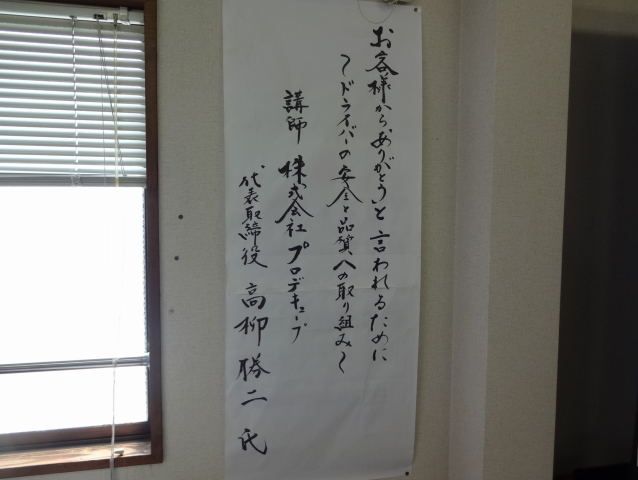 お客様からありがとうと言われるために
～ドライバーの安全と品質への取り組み～
講師 株式会社プロデキューブ
代表取締役 高柳勝二 氏